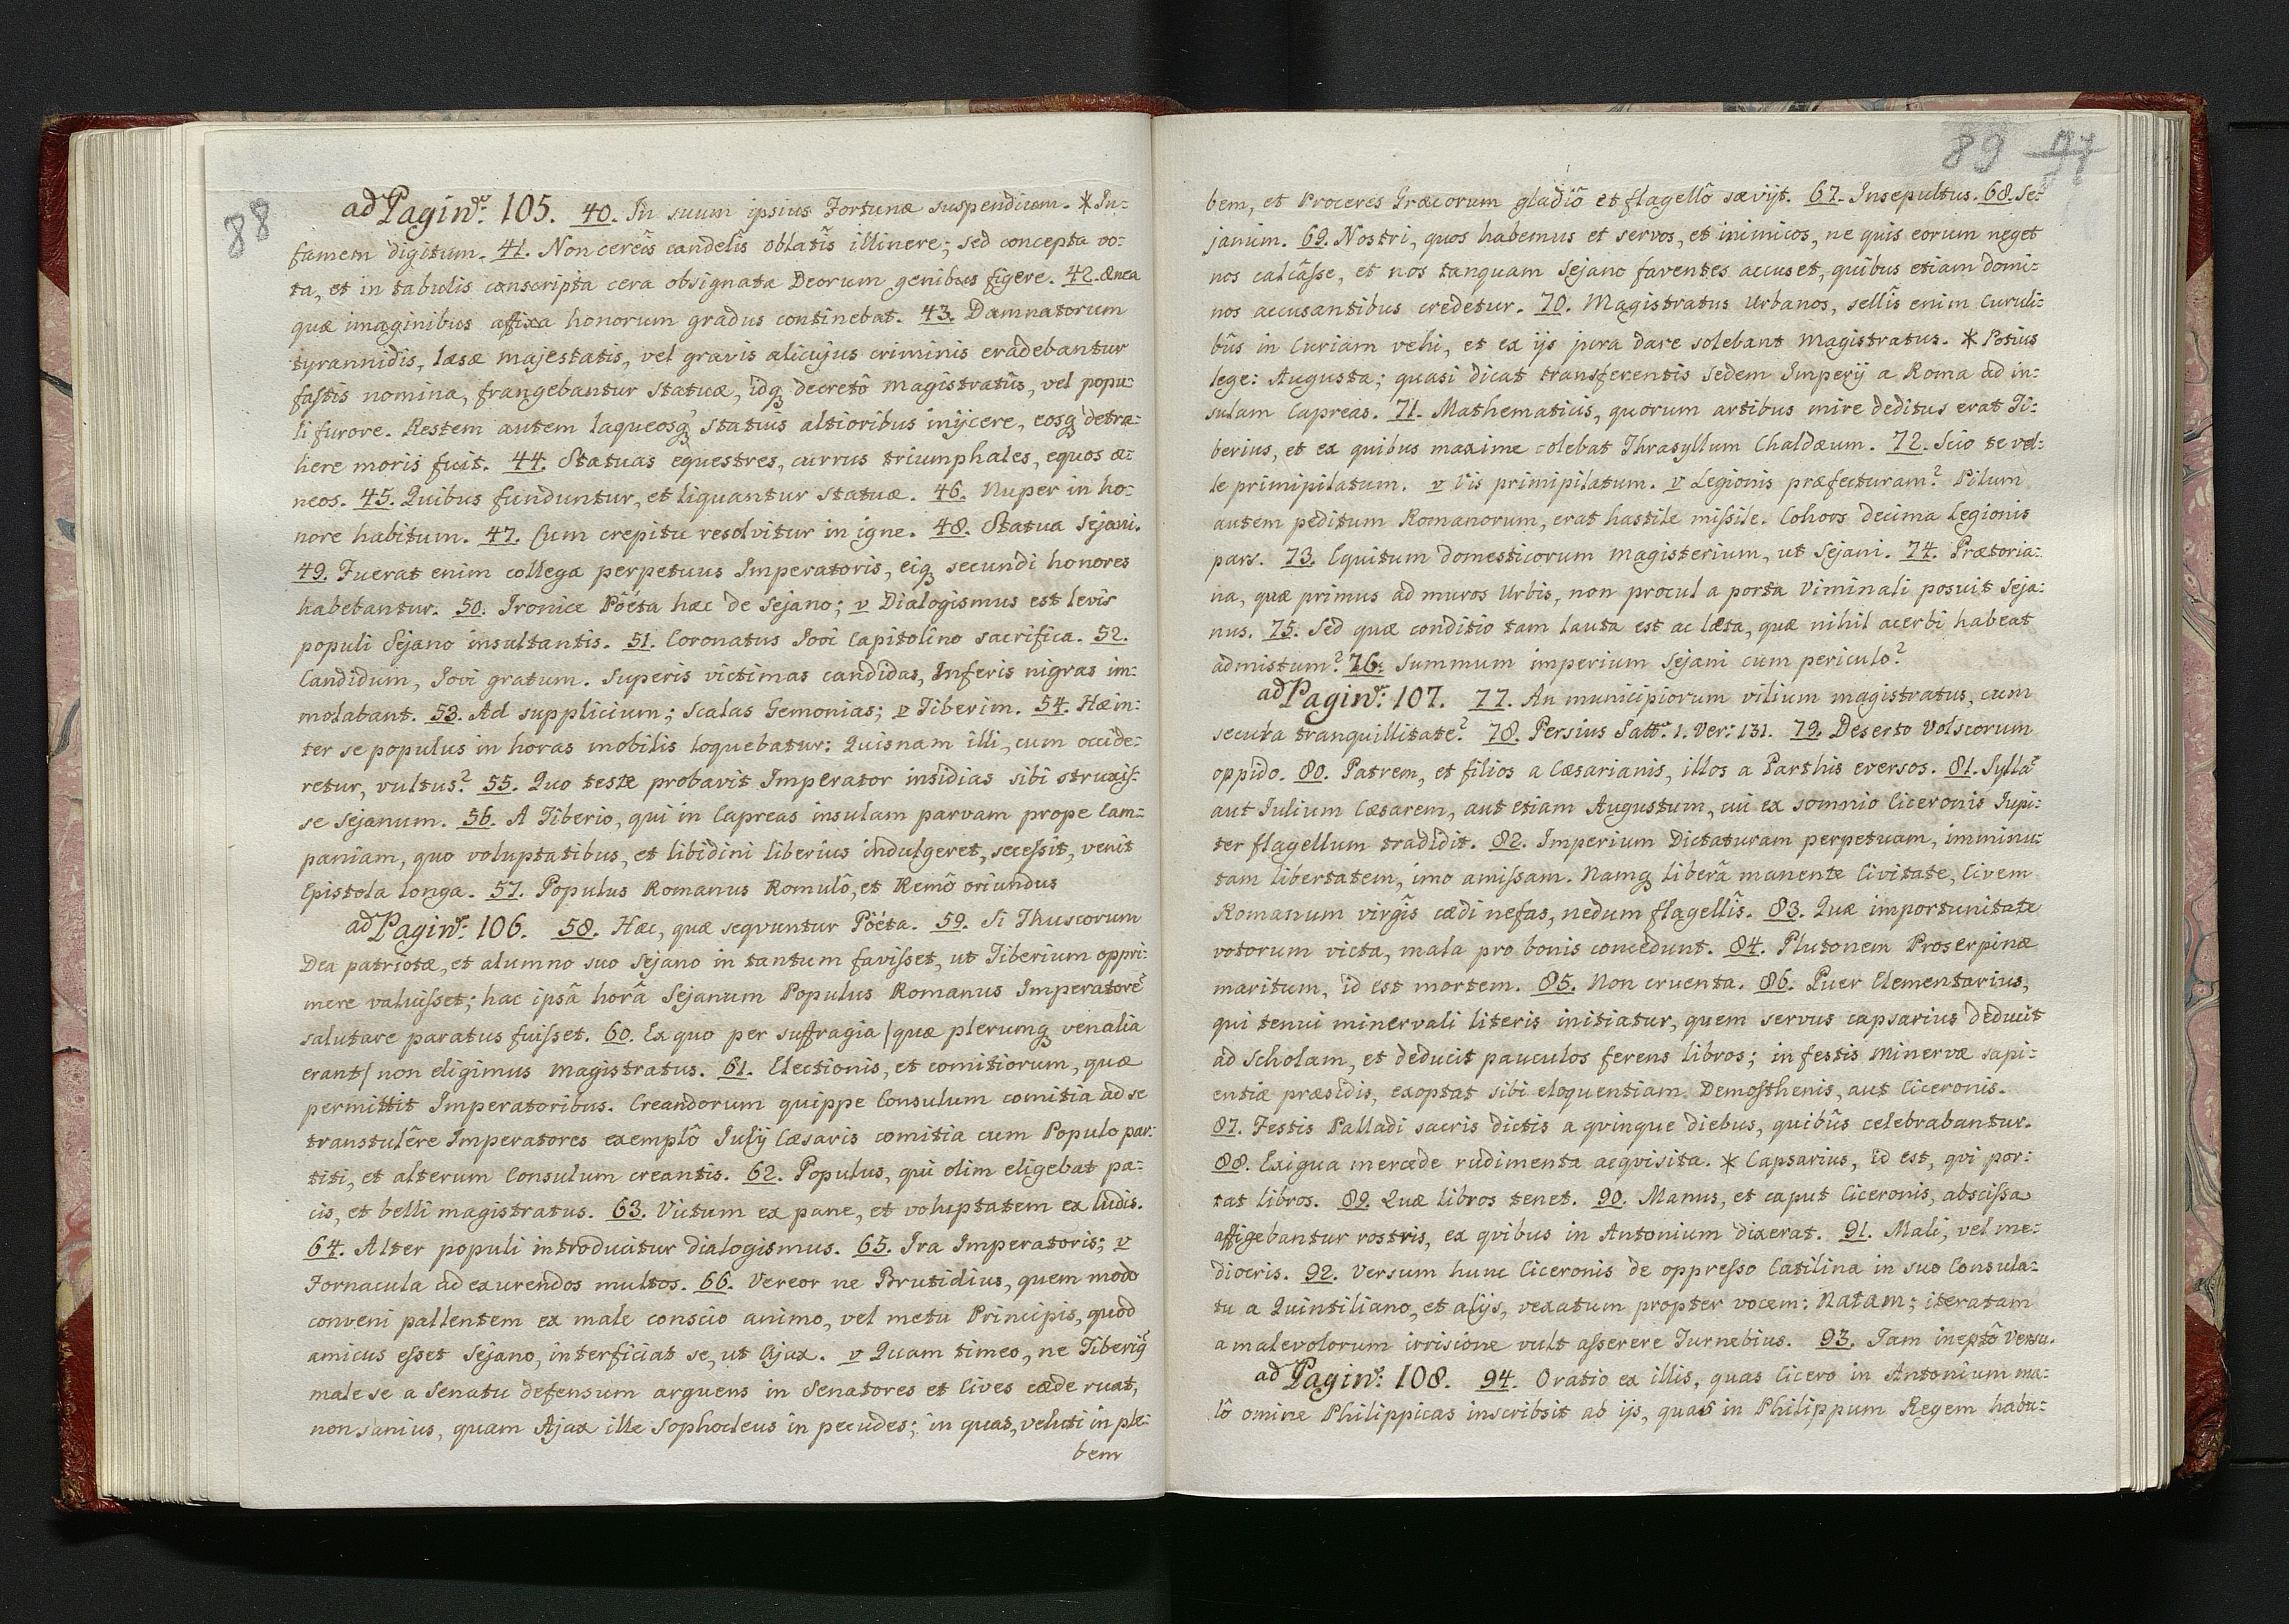 88
ad Pagin: 105. 40. In suum ipsius Fortunæ suspendium. * In=
famem digitum. 41. Non cereîs candelîs oblatîs illinere; sed concepta vo=
ta, et in tabulis conscripta cera obsignata Deorum genibus figere. 42. Ænea
quæ imaginibus affixa honorum gradus continebat. 43. Damnatorum
tyrannidis, læsæ majestatis, vel gravis alicujus criminis eradebantur
fastis nomina, frangebantur statuæ, idq; decretô Magistratûs, vel popu=
li furore. Restem autem laqueosq; statuis altioribus inijcere, eosq; detra=
here moris fuit. 44. Statuas equestres, currus triumphales, equos æ=
neos. 45. Quibus funduntur, et liquantur statuæ. 46. Nuper in ho=
nore habitum. 47. Cum crepitu resolvitur in igne. 48. Statua Sejani.
49. Fuerat enim collega perpetuus Imperatoris, eiq; secundi honores
habebantur. 50. Ironice Pöéta hæc de Sejano; v Dialogismus est levis
populi Sejano insultantis. 51. Coronatus Jovi Capitolino sacrifica. 52.
Candidum, Jovi gratum. Superis victimas candidas, Inferis nigras im=
molabant. 53. Ad supplicium; scalas Gemonias; v Tiberim. 54. Hæ in=
ter se populus in horas mobilis loquebatur: Quisnam illi, cum occide=
retur, vultus? 55. Quo teste probavit Imperator insidias sibi struxis=
se Sejanum. 56. A Tiberio, qui in Capreas insulam parvam prope Cam=
paniam, quo voluptatibus, et libidini liberius indulgeret, secessit, venit
Epistola longa. 57. Populus Romanus Romulô, et Remô oriundus
ad Pagin: 106. 58. Hæc, quæ seqvuntur Pöéta. 59. Si Thuscorum
Dea patriotæ, et alumno suo Sejano in tantum favisset, ut Tiberium oppri=
mere valuisset; hac ipsâ horâ Sejanum Populus Romanus Imperatorẽ
salutare paratus fuisset. 60. Ex quo per suffragia /quæ plerumq; venalia
erant/ non eligimus magistratus. 61. Electionis, et comitiorum, quæ
permittit Imperatoribus. Creandorum quippe Consulum comitia ad se
transtulêre Imperatores exemplô Julij Cæsaris comitia cum Populo par=
titi, et alterum Consulum creantis. 62. Populus, qui olim eligebat pa=
cis, et belli magistratus. 63. Victum ex pane, et voluptatem ex ludis.
64. Alter populi introducitur dialogismus. 65. Ira Imperatoris; v
Fornacula ad exurendos multos. 66. Vereor ne Brutidius, quem modo
conveni pallentem ex male conscio animo, vel metu Principis, quod
amicus esset Sejano, interficiat se, ut Ajax. v Quam timeo, ne Tiberiq
male se a Senatu defensum arguens in Senatores et Cives cæde ruat,
non sanius, quam Ajax ille Sophocleus in pecudes; in quas, veluti in ple=
bem
89 97
bem, et Proceres Græcorum gladiô et flagellô sævijt. 67. Insepultus. 68. Se=
janum. 69. Nostri, quos habemus et servos, et inimicos, ne quis eorum neget
nos calcâsse, et nos tanquam Sejano faventes accuset, quibus etiam domi=
nos accusantibus credetur. 70. Magistratus Urbanos, sellîs enim Curuli=
bûs in Curiam vehi, et ex ijs jura dare solebant Magistratus. * Potius
lege: Augusta; quasi dicat transferentis sedem Imperij a Roma ad in=
sulam Capreas. 71. Mathematicis, quorum artibus mire deditus erat Ti=
berius, et ex quibus maxime colebat Thrasyllum Chaldæum. 72. Scio te vel=
le primipilatum. v Vis primipilatum. v Legionis præfecturam? Pilum
autem peditum Romanorum, erat hastile missile. Cohors decima Legionis
pars. 73. Equitum domesticorum magisterium, ut Sejani. 74. Prætoria=
na, quæ primus ad muros Urbis, non procul a porta Viminali posuit Seja=
nus. 75. Sed quæ conditio tam lauta est ac læta, quæ nihil acerbi habeat
admistum? 76. Summum imperium Sejani cum periculo?
ad Pagin: 107. 77. An municipiorum vilium magistratus, cum
secura tranquillitate? 78. Persius Satt: 1. Ver: 131. 79. Deserto Volscorum
oppido. 80. Patrem, et filios a Cæsarianis, illos a Parthis eversos. 81. Syllã
aut Julium Cæsarem, aut etiam Augustum, cui ex somnio Ciceronis Jupi=
ter flagellum tradidit. 82. Imperium Dictaturam perpetuam, imminu=
tam libertatem, imo amissam. Namq; liberâ manente Civitate, Civem
Romanum virgîs cædi nefas, nedum flagellîs. 83. Quæ importunitate
votorum victa, mala pro bonis concedunt. 84. Plutonem Proserpinæ
maritum, id est mortem. 85. Non cruenta. 86. Puer Elementarius,
qui tenui minervali literis initiatur, quem servus capsarius deducit
ad Scholam, et deducit pauculos ferens libros; in festis Minervæ sapi=
entiæ præsidis, exoptat sibi eloquentiam Demosthenis, aut Ciceronis.
87. Festis Palladi sacris dictis a qvinque diebus, quibûs celebrabantur.
88. Exigua mercede rudimenta acqvisita. * Capsarius, id est, qvi por=
tat libros. 89. Quæ libros tenet. 90. Manus, et caput Ciceronis, abscissa
affigebantur rostris, ex qvibus in Antonium dixerat. 91. Mali, vel me=
diocris. 92. Versum hunc Ciceronis de oppresso Catilina in suo Consula=
tu a Quintiliano, et alijs, vexatum propter vocem: Natam; iteratam
a malevolorum irrisione vult asserere Turnebius. 93. Tam ineptô versu.
ad Pagin: 108. 94. Oratio ex illis, quas Cicero in Antonium ma=
lô omine Philippicas inscribsit ab ijs, quas in Philippum Regem habu=